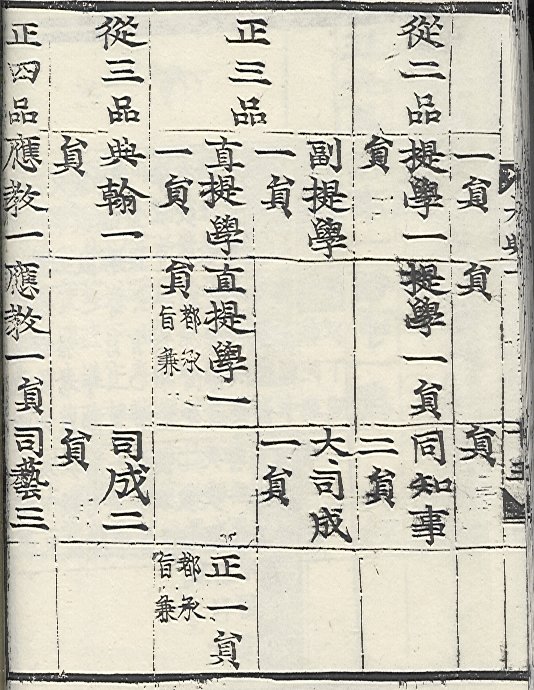 一貟 貟 貟
從二品 提學一 提學一貟 同知事
貟 二貟
正三品
副提學 大司成
一貟 一貟
直提學 直提學一 正一貟
一貟 貟 都承旨兼 都承旨兼
從三品 典翰一 司成二
貟 貟
正四品 應教一 應教一貟 司藝三